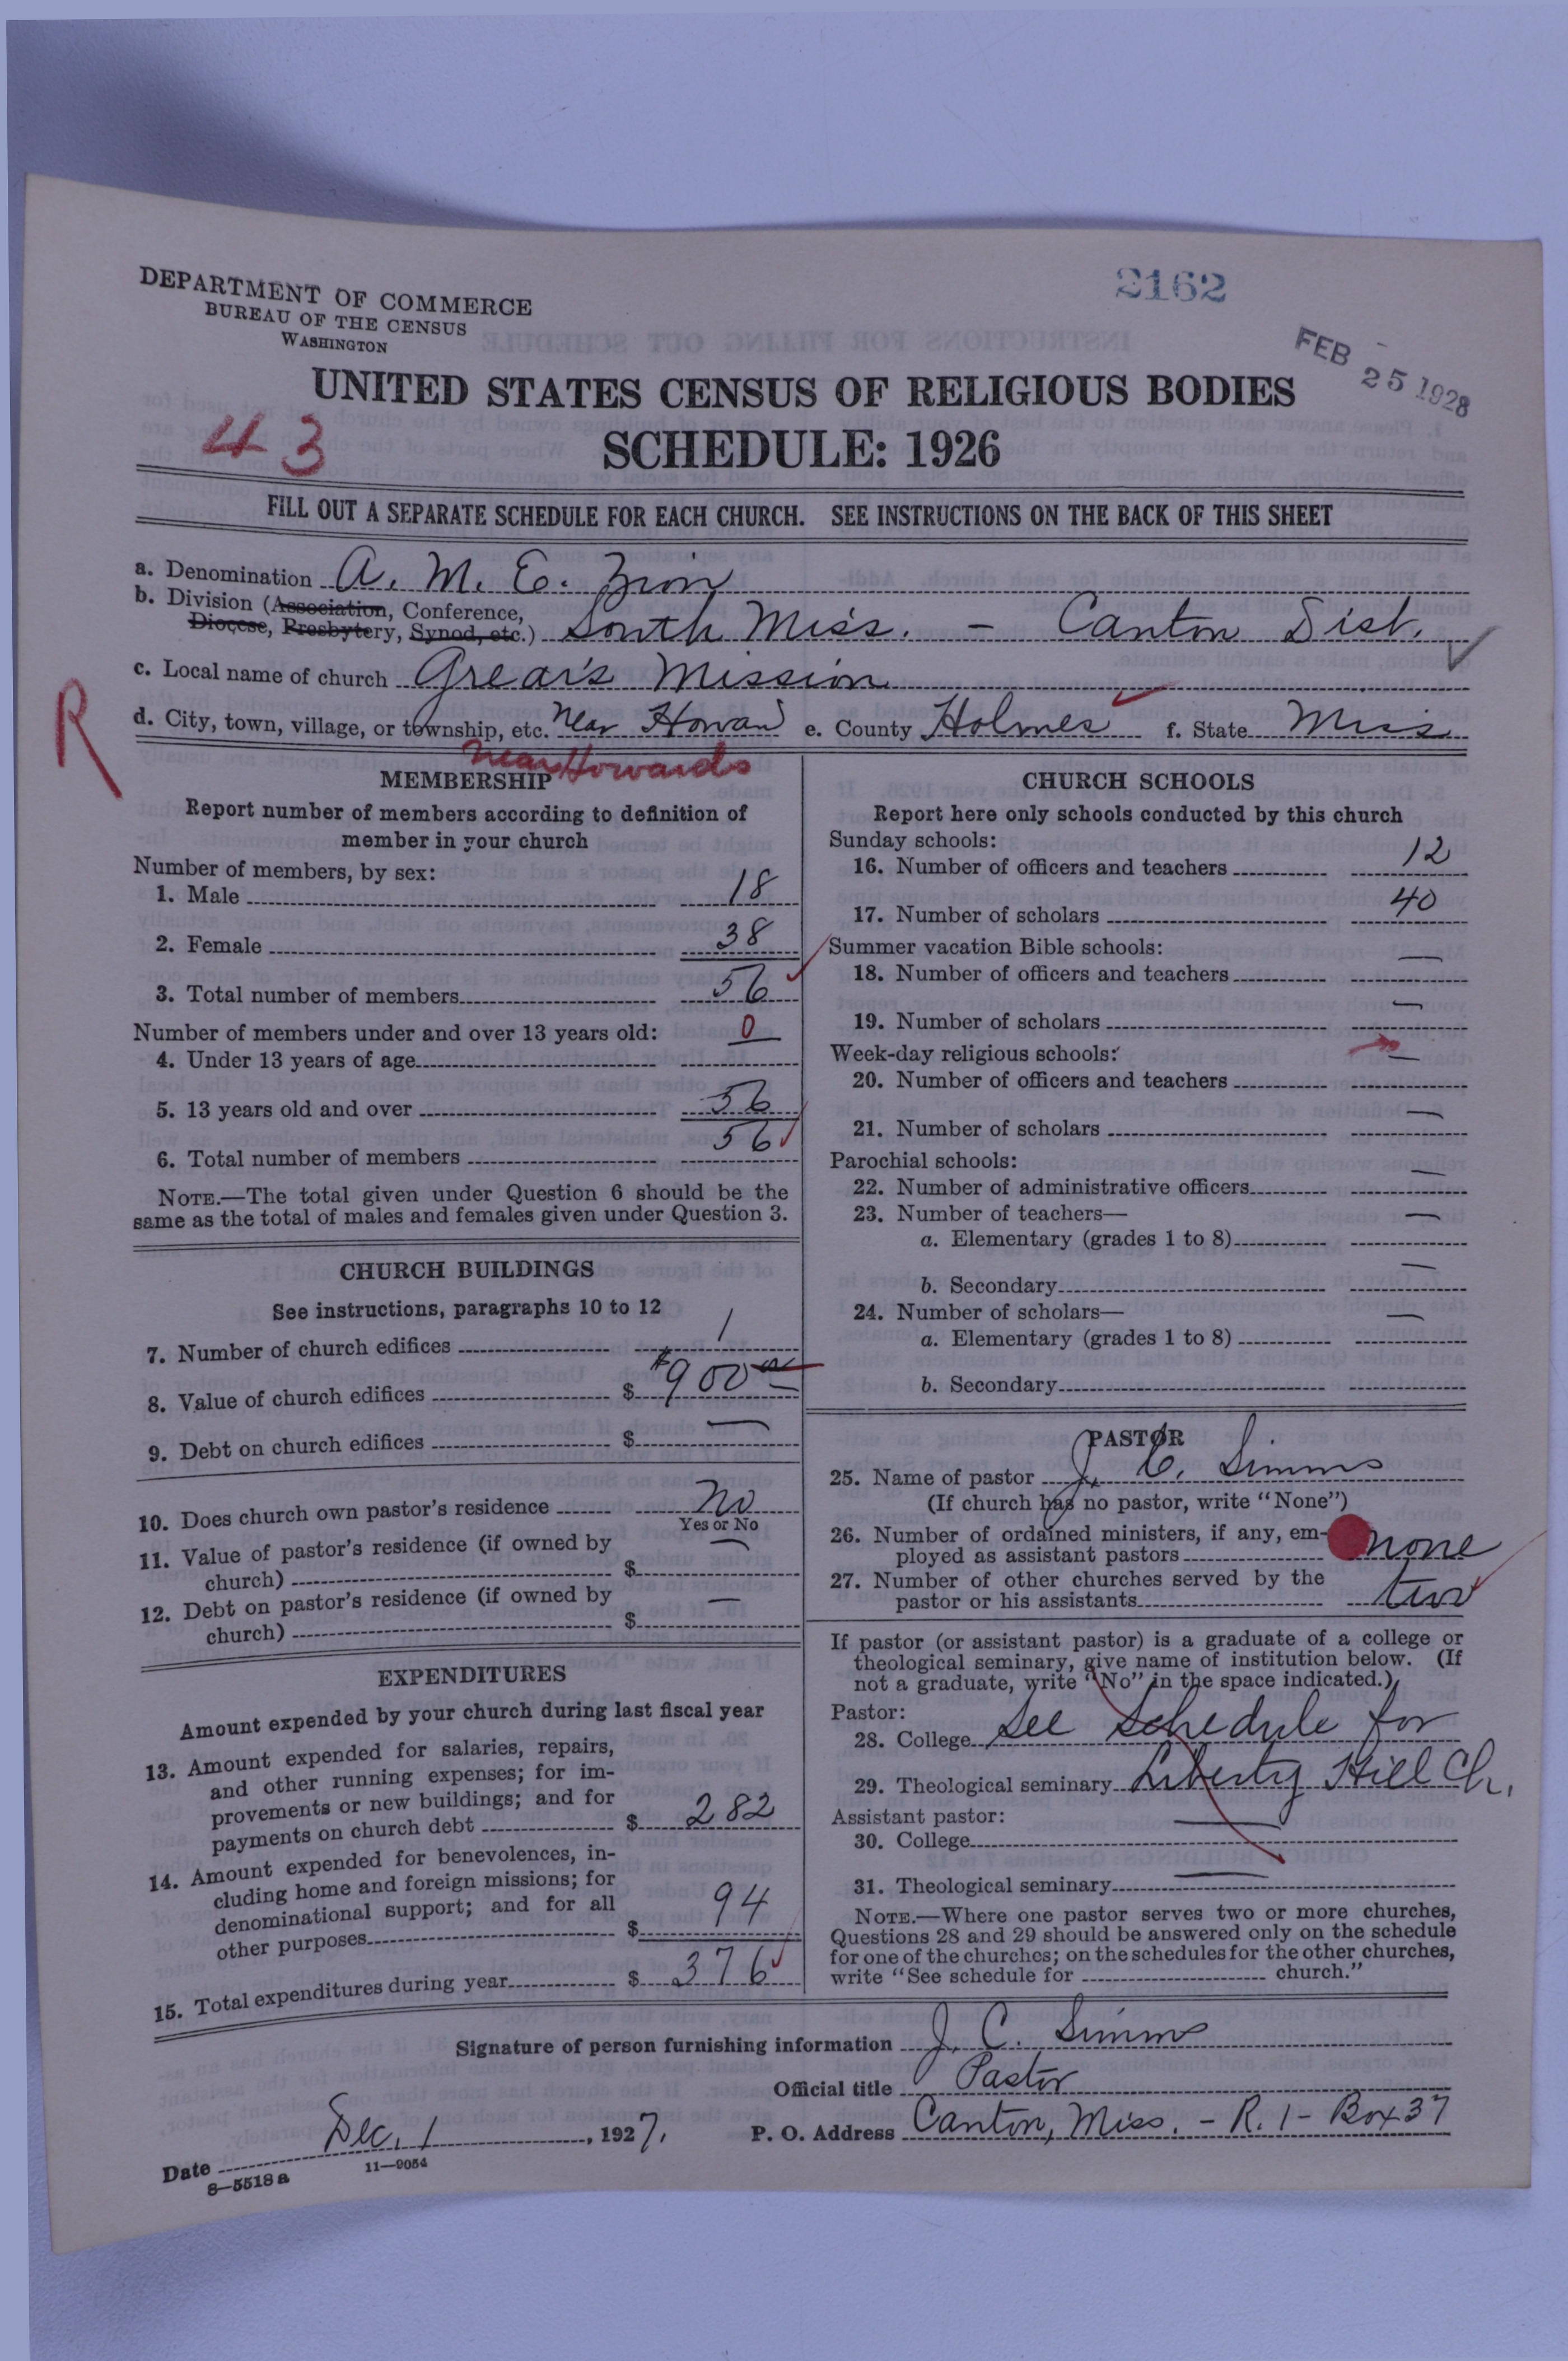 DEPARTMENT OF COMMERCE
BUREAU OF THE CENSUS
WASHINGTON
2162
FEB 25 1928
UNITED STATES CENSUS OF RELIGIOUS BODIES
43
SCHEDULE: 1926
FILL OUT A SEPARATE SCHEDULE FOR EACH CHURCH. SEE INSTRUCTIONS ON THE BACK OF THIS SHEET
a. Denomination A. M. E. Zion
b. Division (Association, Conference,
Diocese, Presbytery, Synod, etc.) South Miss. - Canton Dist.
c. Local name of church Grear's Mission
R
d. City, town, village, or township, etc. Near Howard e. County Holmes f. State Miss
near Howards
MEMBERSHIP
Report number of members according to definition of
member in your church
Number of members, by sex:
1. Male 18
2. Female 38
3. Total number of members 56
Number of members under and over 13 years old:
4. Under 13 years of age 0
5. 13 years old and over 56
6. Total number of members 56
NOTE.—The total given under Question 6 should be the
same as the total of males and females given under Question 3.
CHURCH BUILDINGS
See instructions, paragraphs 10 to 12
7. Number of church edifices 1
8. Value of church edifices $ $900 00
9. Debt on church edifices $ —
10. Does church own pastor's residence No
Yes or No
11. Value of pastor's residence (if owned by
church) $ —
12. Debt on pastor's residence (if owned by
church) $ —
EXPENDITURES
Amount expended by your church during last fiscal year
13. Amount expended for salaries, repairs,
and other running expenses; for im-
provements or new buildings; and for
payments on church debt $ 282
14. Amount expended for benevolences, in-
cluding home and foreign missions; for
denominational support; and for all
other purposes $ 94
15. Total expenditures during year $ 376
CHURCH SCHOOLS
Report here only schools conducted by this church
Sunday schools:
16. Number of officers and teachers 12
17. Number of scholars 40
Summer vacation Bible schools:
18. Number of officers and teachers —
19. Number of scholars —
Week-day religious schools:
20. Number of officers and teachers —
21. Number of scholars —
Parochial schools:
22. Number of administrative officers —
23. Number of teachers—
a. Elementary (grades 1 to 8) —
b. Secondary —
24. Number of scholars—
a. Elementary (grades 1 to 8) —
b. Secondary
PASTOR
25. Name of pastor J. C. Simms
(If church has no pastor, write "None")
26. Number of ordained ministers, if any, em-
ployed as assistant pastors none
27. Number of other churches served by the
pastor or his assistants two
If pastor (or assistant pastor) is a graduate of a college or
theological seminary, give name of institution below. (If
not a graduate, write "No" in the space indicated.)
Pastor:
28. College See Schedule for
29. Theological seminary Liberty Hill Ch.
Assistant pastor:
30. College —
31. Theological seminary —
NOTE.—Where one pastor serves two or more churches,
Questions 28 and 29 should be answered only on the schedule
for one of the churches; on the schedules for the other churches,
write "See schedule for church."
Signature of person furnishing information J. C. Simms
Official title Pastor
Date Dec. 1, 1927. P. O. Address Canton, Miss. - R. 1 - Box 37
8—5518a 11—9054